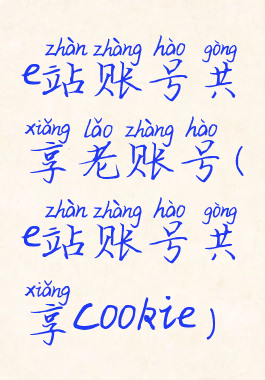 zhàn zhàng hào gòng
e站账号共
xiǎng lǎo zhàng hào
享老账号(
zhàn zhàng hào gòng
e站账号共
xiǎng
享cookie)